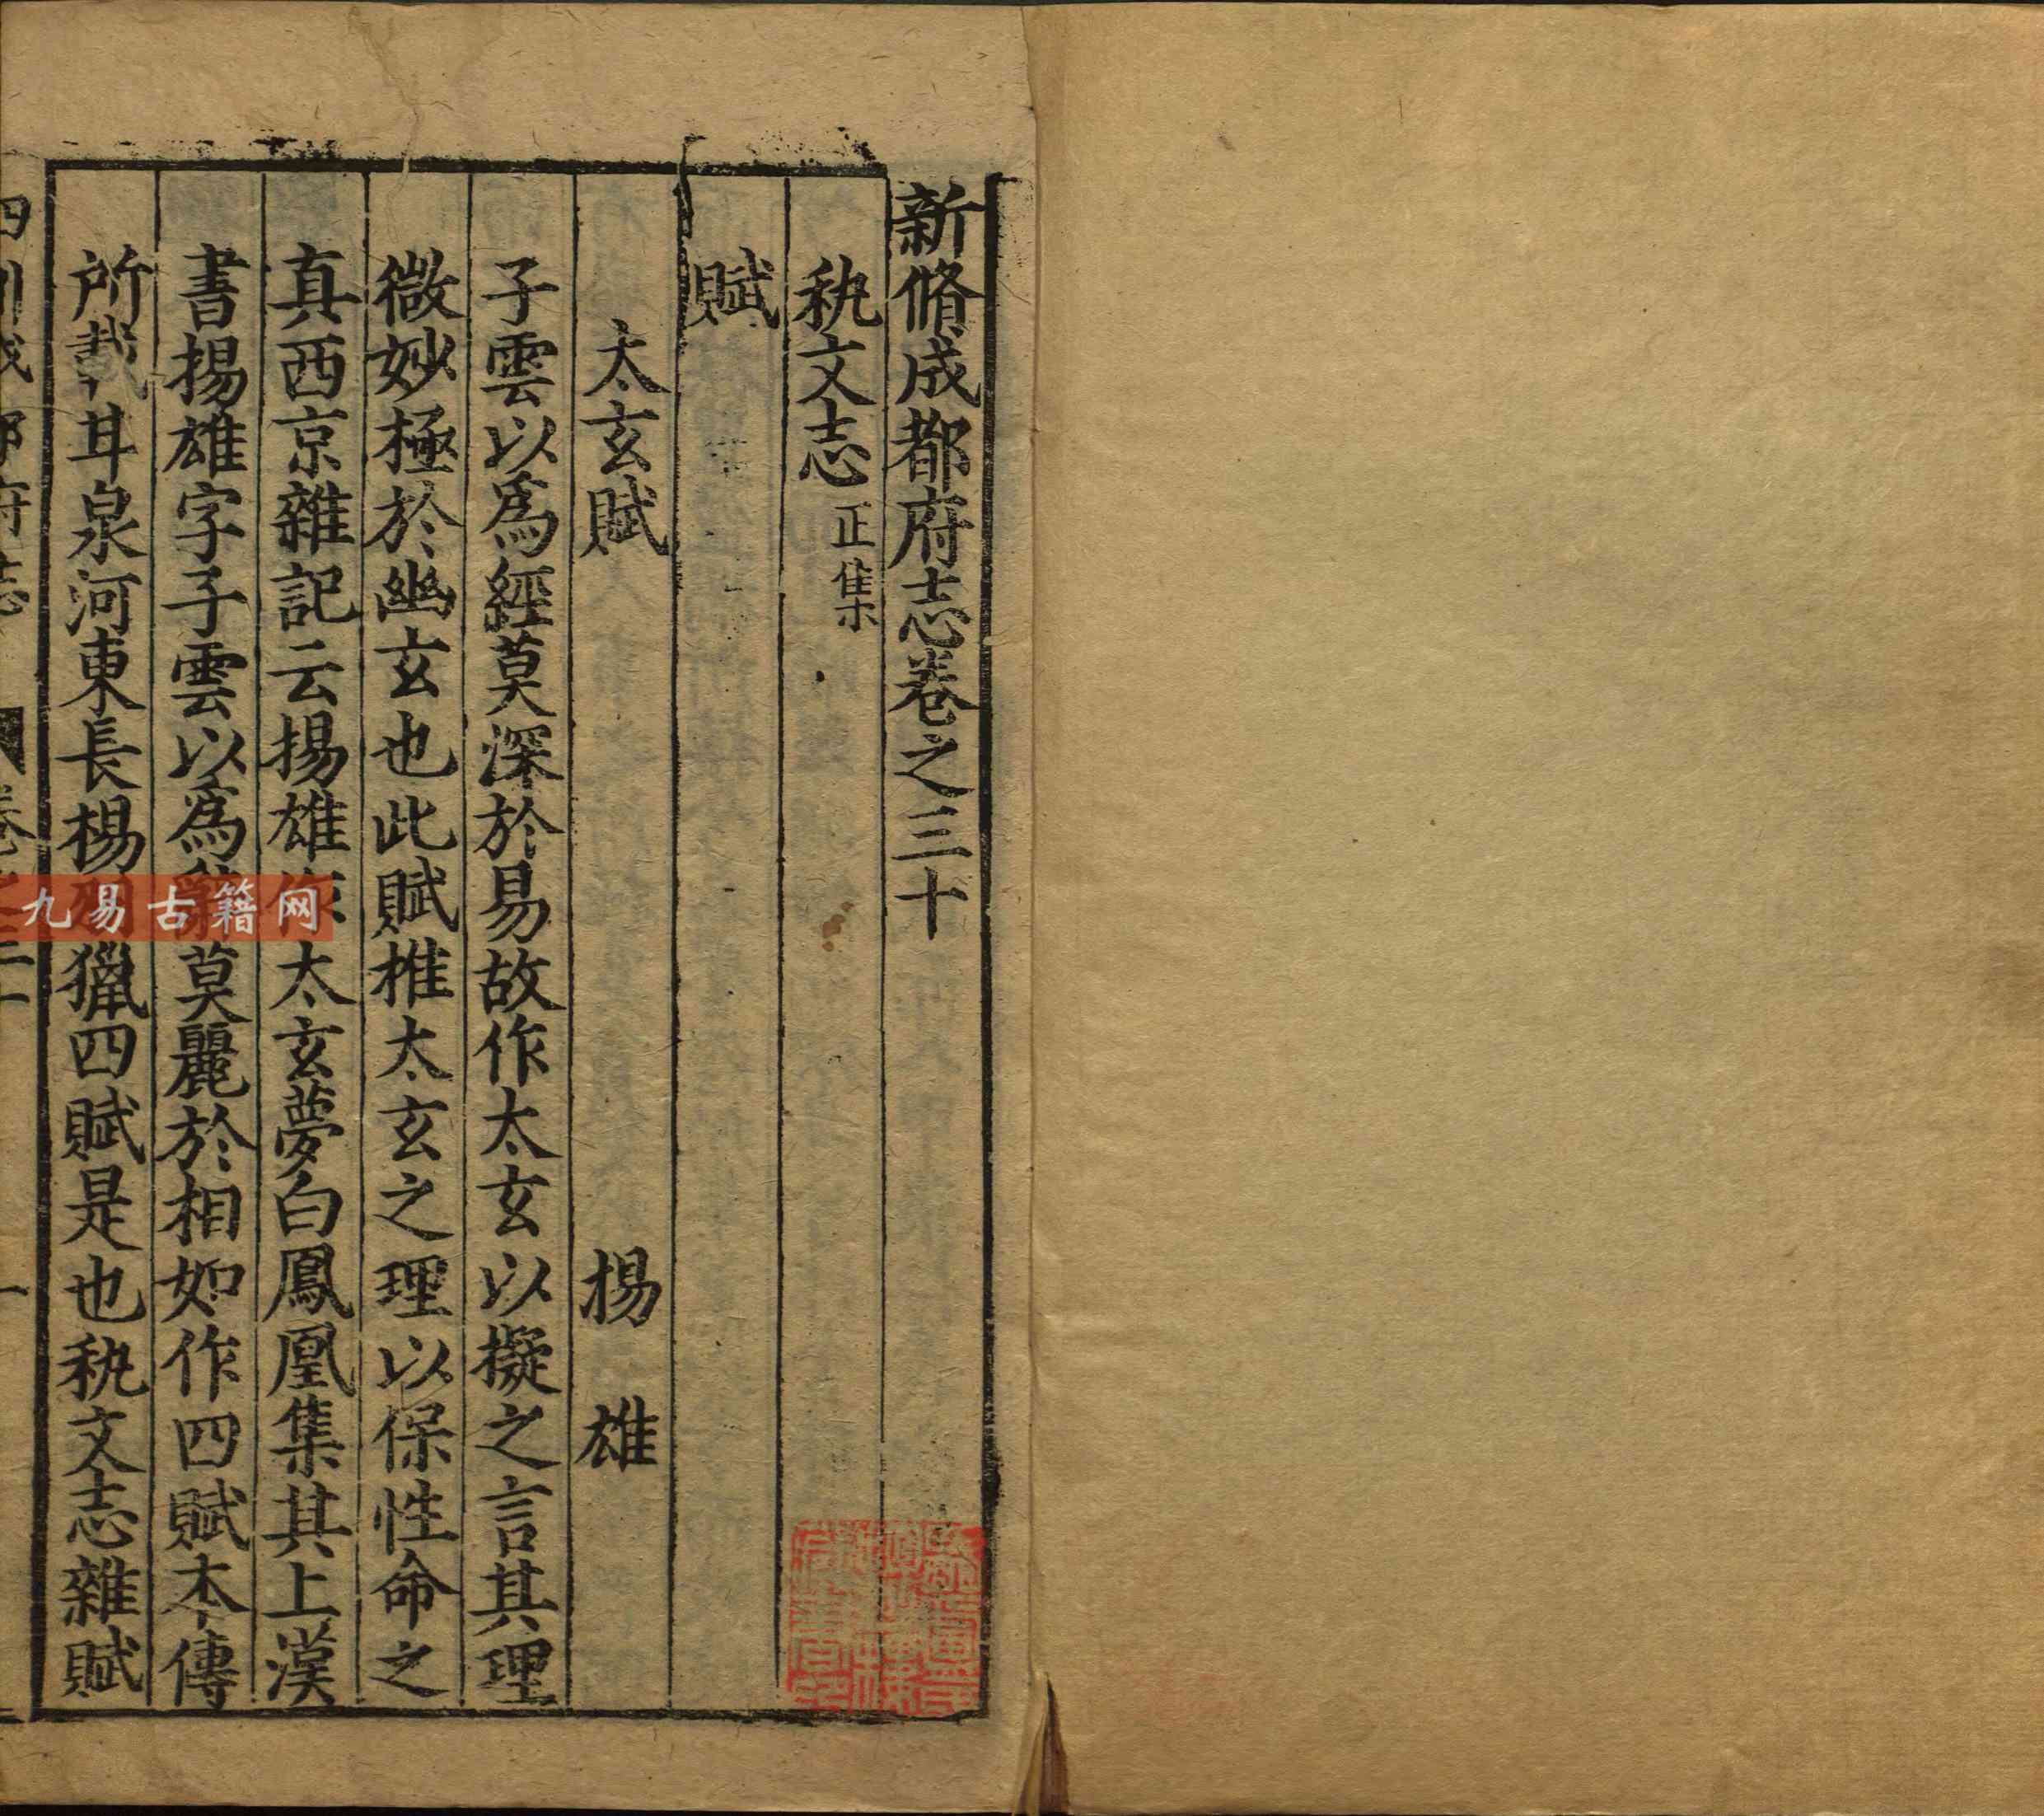 新脩成都府志卷之三十
秇文志 正集
賦
太玄賦 揚雄
子雲以爲經莫深於易故作太玄以擬之言其理
微妙極於幽玄也此賦推太玄之理以保性命之
真西京雜記云揚雄作太玄夢白鳳凰集其上漢
書揚雄字子雲以爲莫麗於相如作四賦本傳
所載甘泉河東長楊獵四賦是也秇文志雜賦
九易古籍网